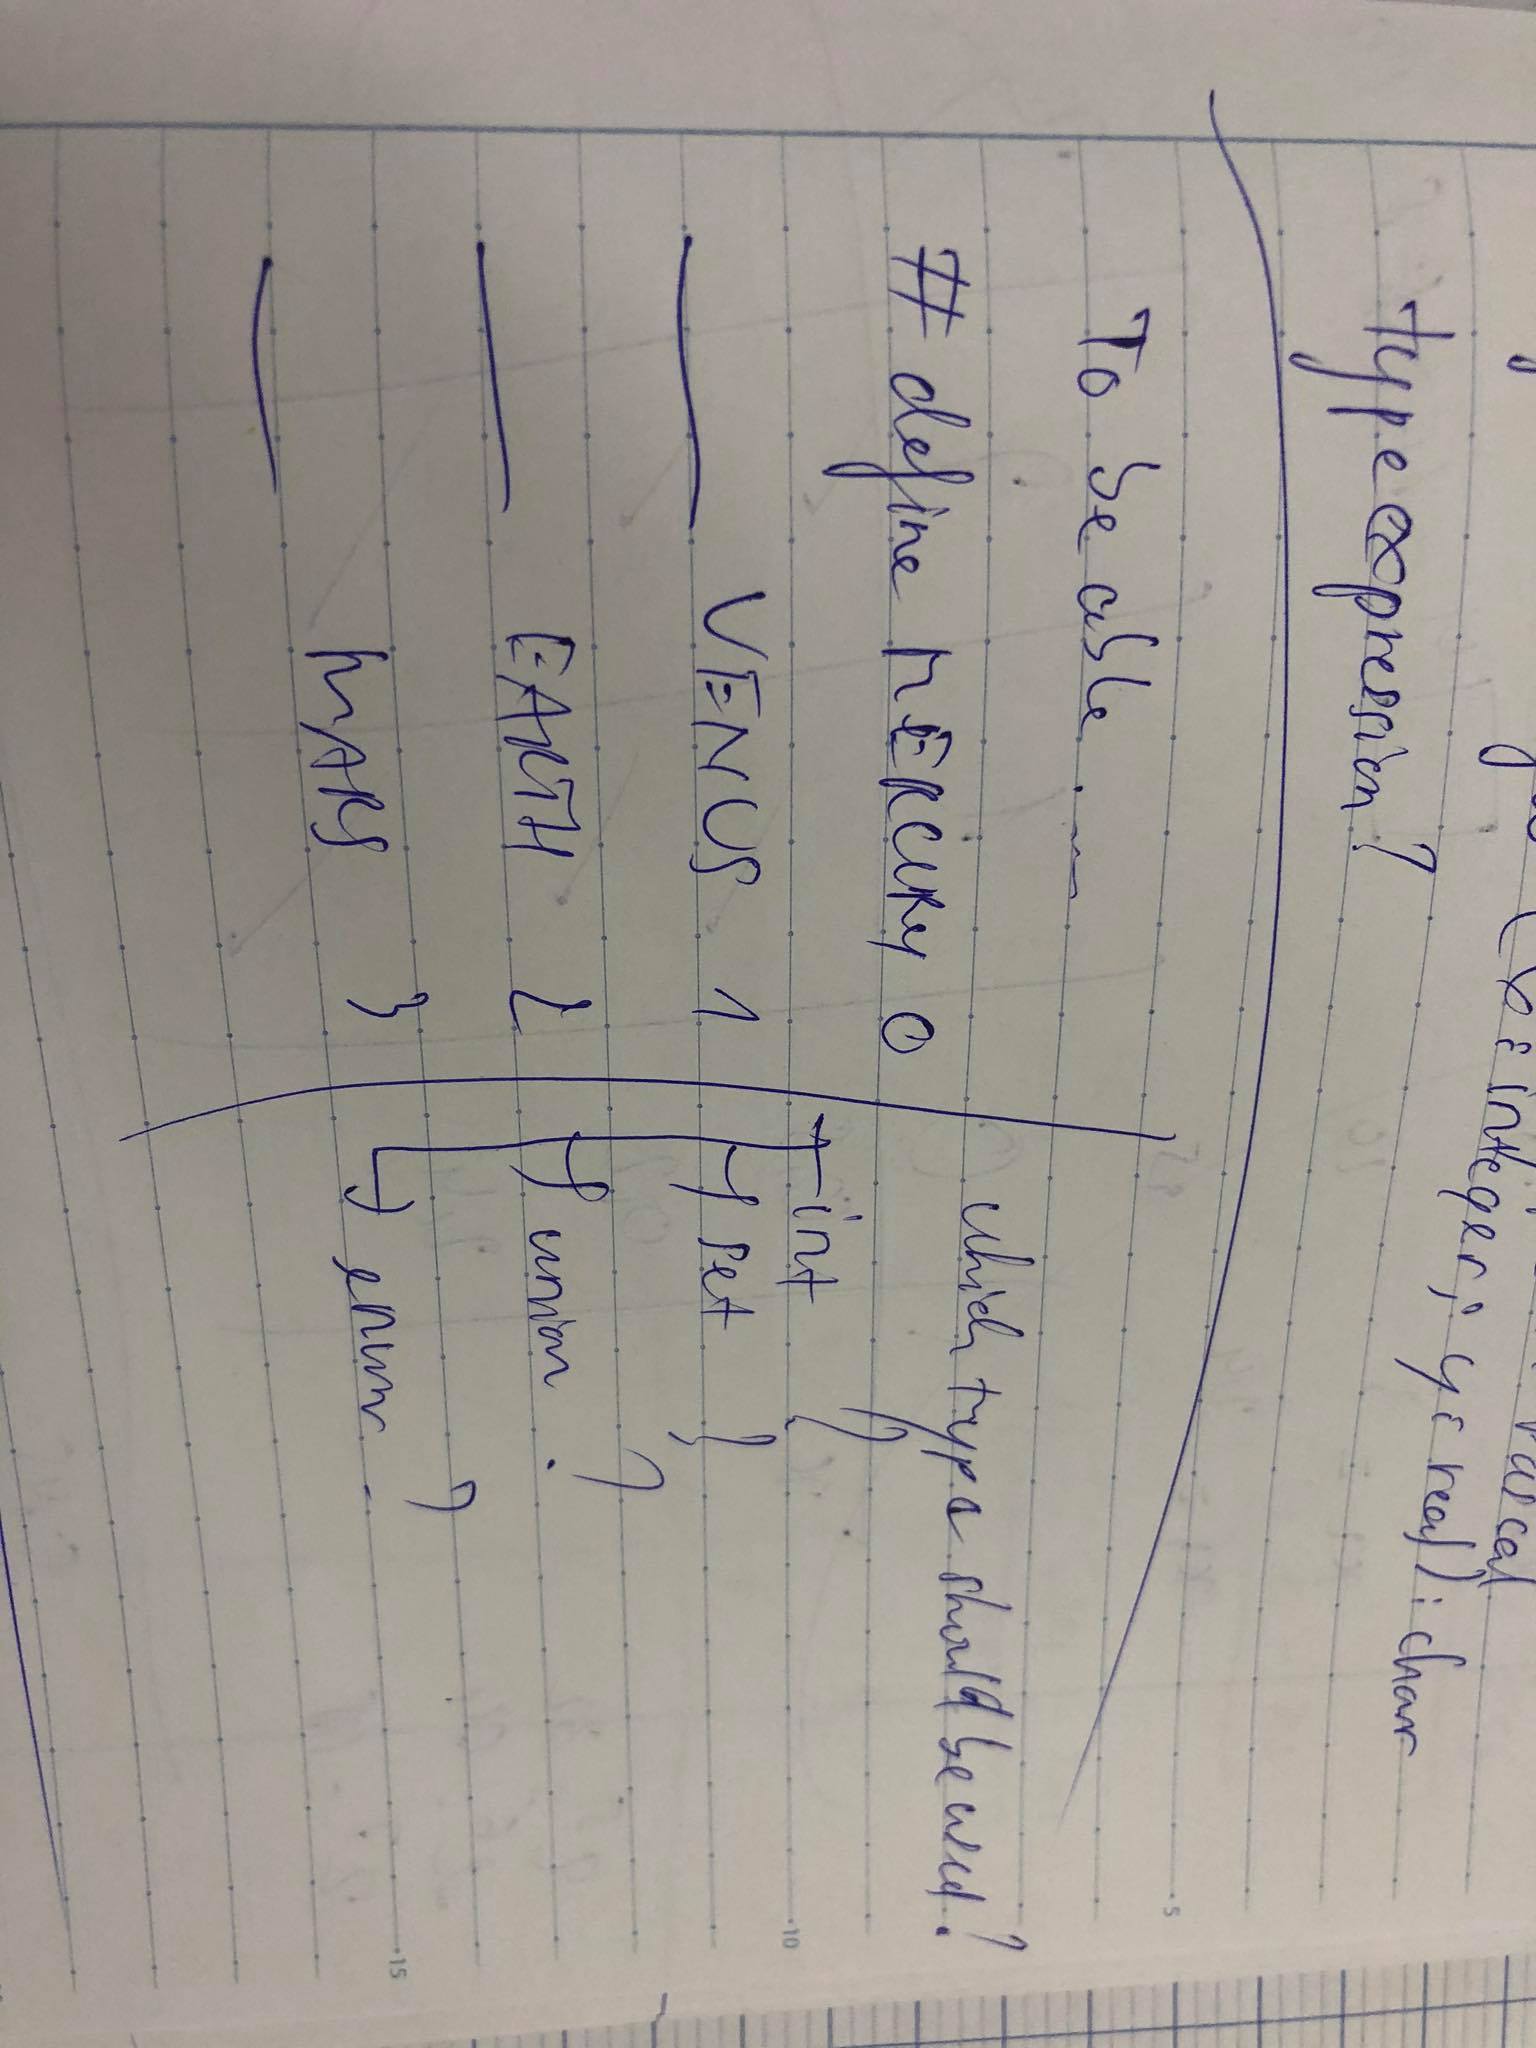 Pascal
(x: integer; y: real): char
type expression?
To be able ...
# define MERCURY 0
VENUS 1
EARTH 2
MARS 3
which type should be used?
int ?
set ?
union ?
enum ?